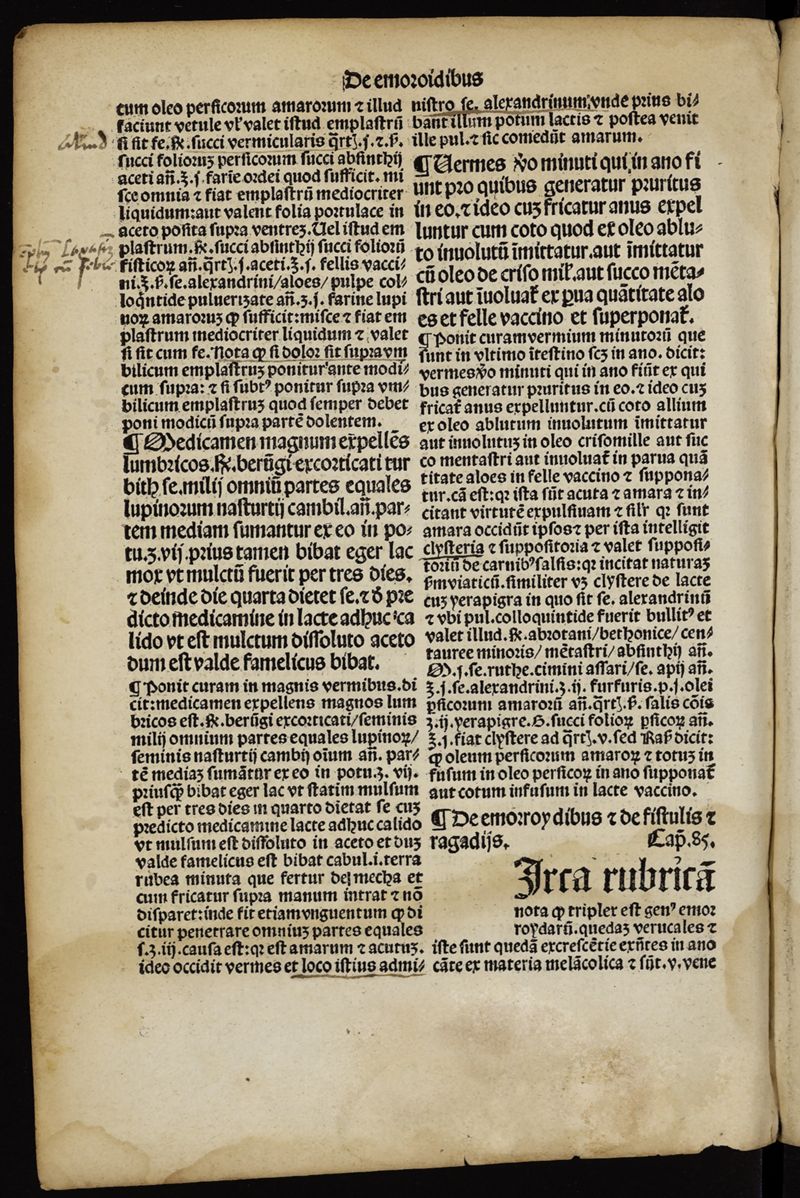 De emoroidibus
cum oleo persicorum amarorum ⁊ illud
faciunt vetule vl' valet istud emplastrū
si fit fe.℞.succi vermicularis q̄rt.j.⁊.ß.
succi folioruꝫ persicorum succi absinthij
aceti añ.ʒ.j.farīe ordei quod sufficit. mi
sce omnia ⁊ fiat emplastrū mediocriter
liquidum:aut valent folia portulace in
aceto posita supra ventreꝫ.Uel istud em
plastrum.℞.succi absinthij succi foliorū
fisticoꝝ añ.q̄rt.j.aceti.ʒ.j. fellis vacci⸗
ni.ʒ.ß.fe.alexandrini/aloes/pulpe col⸗
loq̄ntide pulueriʒate añ.ʒ.j. farine lupi
noꝝ amaroruꝫ ꝙ sufficit:misce ⁊ fiat em
plastrum mediocriter liquidum ⁊ valet
si fit cum fe. Nota ꝙ si dolor sit supra vm
bilicum emplastruꝫ ponitur ante modi⸗
cum supra: ⁊ si subt⁹ ponitur supra vm⸗
bilicum emplastruꝫ quod semper debet
poni modicū supra partē dolentem.
¶ Medicamen magnum expellēs
lumbricos.℞.berūgi excorticati tur
bith se.milij omniū partes equales
lupinorum nasturtij cambil.añ.par⸗
tem mediam sumantur ex eo in po⸗
tu.ʒ.vij.prius tamen bibat eger lac
mox vt mulctū fuerit per tres dies.
⁊ deinde die quarta dietet se.⁊ d̄ pre
dicto medicamine in lacte adhuc ca
lido vt est mulctum dissoluto aceto
dum est valde famelicus bibat.
¶ Ponit curam in magnis vermibus.di
cit:medicamen expellens magnos lum
bricos est.℞.berūgi excorticati/seminis
milij omnium partes equales lupinoꝝ/
seminis nasturtij cambij oīum añ. par⸗
tē mediaꝫ sumātur ex eo in potu.ʒ. vij.
priusꝗ̄ bibat eger lac vt statim mulsum
est per tres dies in quarto dietat se cuꝫ
predicto medicamine lacte adhuc calido
vt mulsum est dissoluto in aceto et duꝫ
valde famelicus est bibat cabul.i.terra
rubea minuta que fertur de mecha et
cum fricatur supra manum intrat ⁊ nō
disparet:inde fit etiam vnguentum ꝙ di
citur penetrare omniuꝫ partes equales
s.ʒ.iij.causa est:qꝛ est amarum ⁊ acutuꝫ.
ideo occidit vermes et loco istius admi⸗
nistro fe. alexandrinum:vnde prius bi⸗
bant illum potum lactis ⁊ postea venit
ille pul.⁊ sic comedūt amarum.
¶ Uermes v̄o minuti qui in ano fi
unt pro quibus generatur pruritus
in eo.⁊ ideo cuꝫ fricatur anus expel
luntur cum coto quod ex oleo ablu⸗
to inuolutū īmittatur.aut īmittatur
cū oleo de criso mil'.aut succo mēta⸗
stri aut īuoluat̄ ex ꝑua quātitate alo
es et felle vaccino et superponat̄.
¶ Ponit curam vermium minutorū que
sunt in vltimo ītestino scꝫ in ano. dicit:
vermes v̄o minuti qui in ano fiūt ex qui
bus generatur pruritus in eo.⁊ ideo cuꝫ
fricat̄ anus expelluntur.cū coto allium
ex oleo ablutum inuolutum īmittatur
aut inuolutuꝫ in oleo crisomille aut suc
co mentastri aut inuoluat̄ in parua quā
titate aloes in felle vaccino ⁊ suppona⸗
tur.cā est:qꝛ ista sūt acuta ⁊ amara ⁊ in⸗
citant virtutē expulsiuam ⁊ sil'r qꝛ sunt
amara occidūt ipsos⁊ per ista intelligit
clysteria ⁊ suppositoria ⁊ valet supposi⸗
toriū de carnib⁹ salsis:qꝛ incitat naturaꝫ
ꝑm viaticū.similiter vꝫ clystere de lacte
cuꝫ yerapigra in quo sit fe. alexandrinū
⁊ vbi pul.colloquintide fuerit bullit⁹ et
valet illud.℞.abrotani/bethonice/cen⸗
tauree minoris/ mētastri/ absinthij añ.
M.j.se.ruthe.cimini assari/se. apij añ.
ʒ.j.fe.alexandrini.ʒ.ij. furfuris.p.j.olei
ꝑsicorum amarorū añ.q̄rt.ß. salis cōis
ʒ.ij.yerapigre.℥.succi folioꝝ ꝑsicoꝝ añ.
ʒ.j.fiat clystere ad q̄rt.v.sed Raß dicit:
ꝙ oleum persicorum amaroꝝ ⁊ totuꝫ in
fusum in oleo persicoꝝ in ano supponat̄
aut cotum infusum in lacte vaccino.
¶ De emorroydibus ⁊ de fistulis ⁊
ragadijs. Cap̄.85.
Irca rubricā
nota ꝙ triplex est gen⁹ emor
roydarū.quedaꝫ verucales ⁊
iste sunt quedā excrescētie exn̄tes in ano
cāte ex materia melācolica ⁊ sūt.v.vene